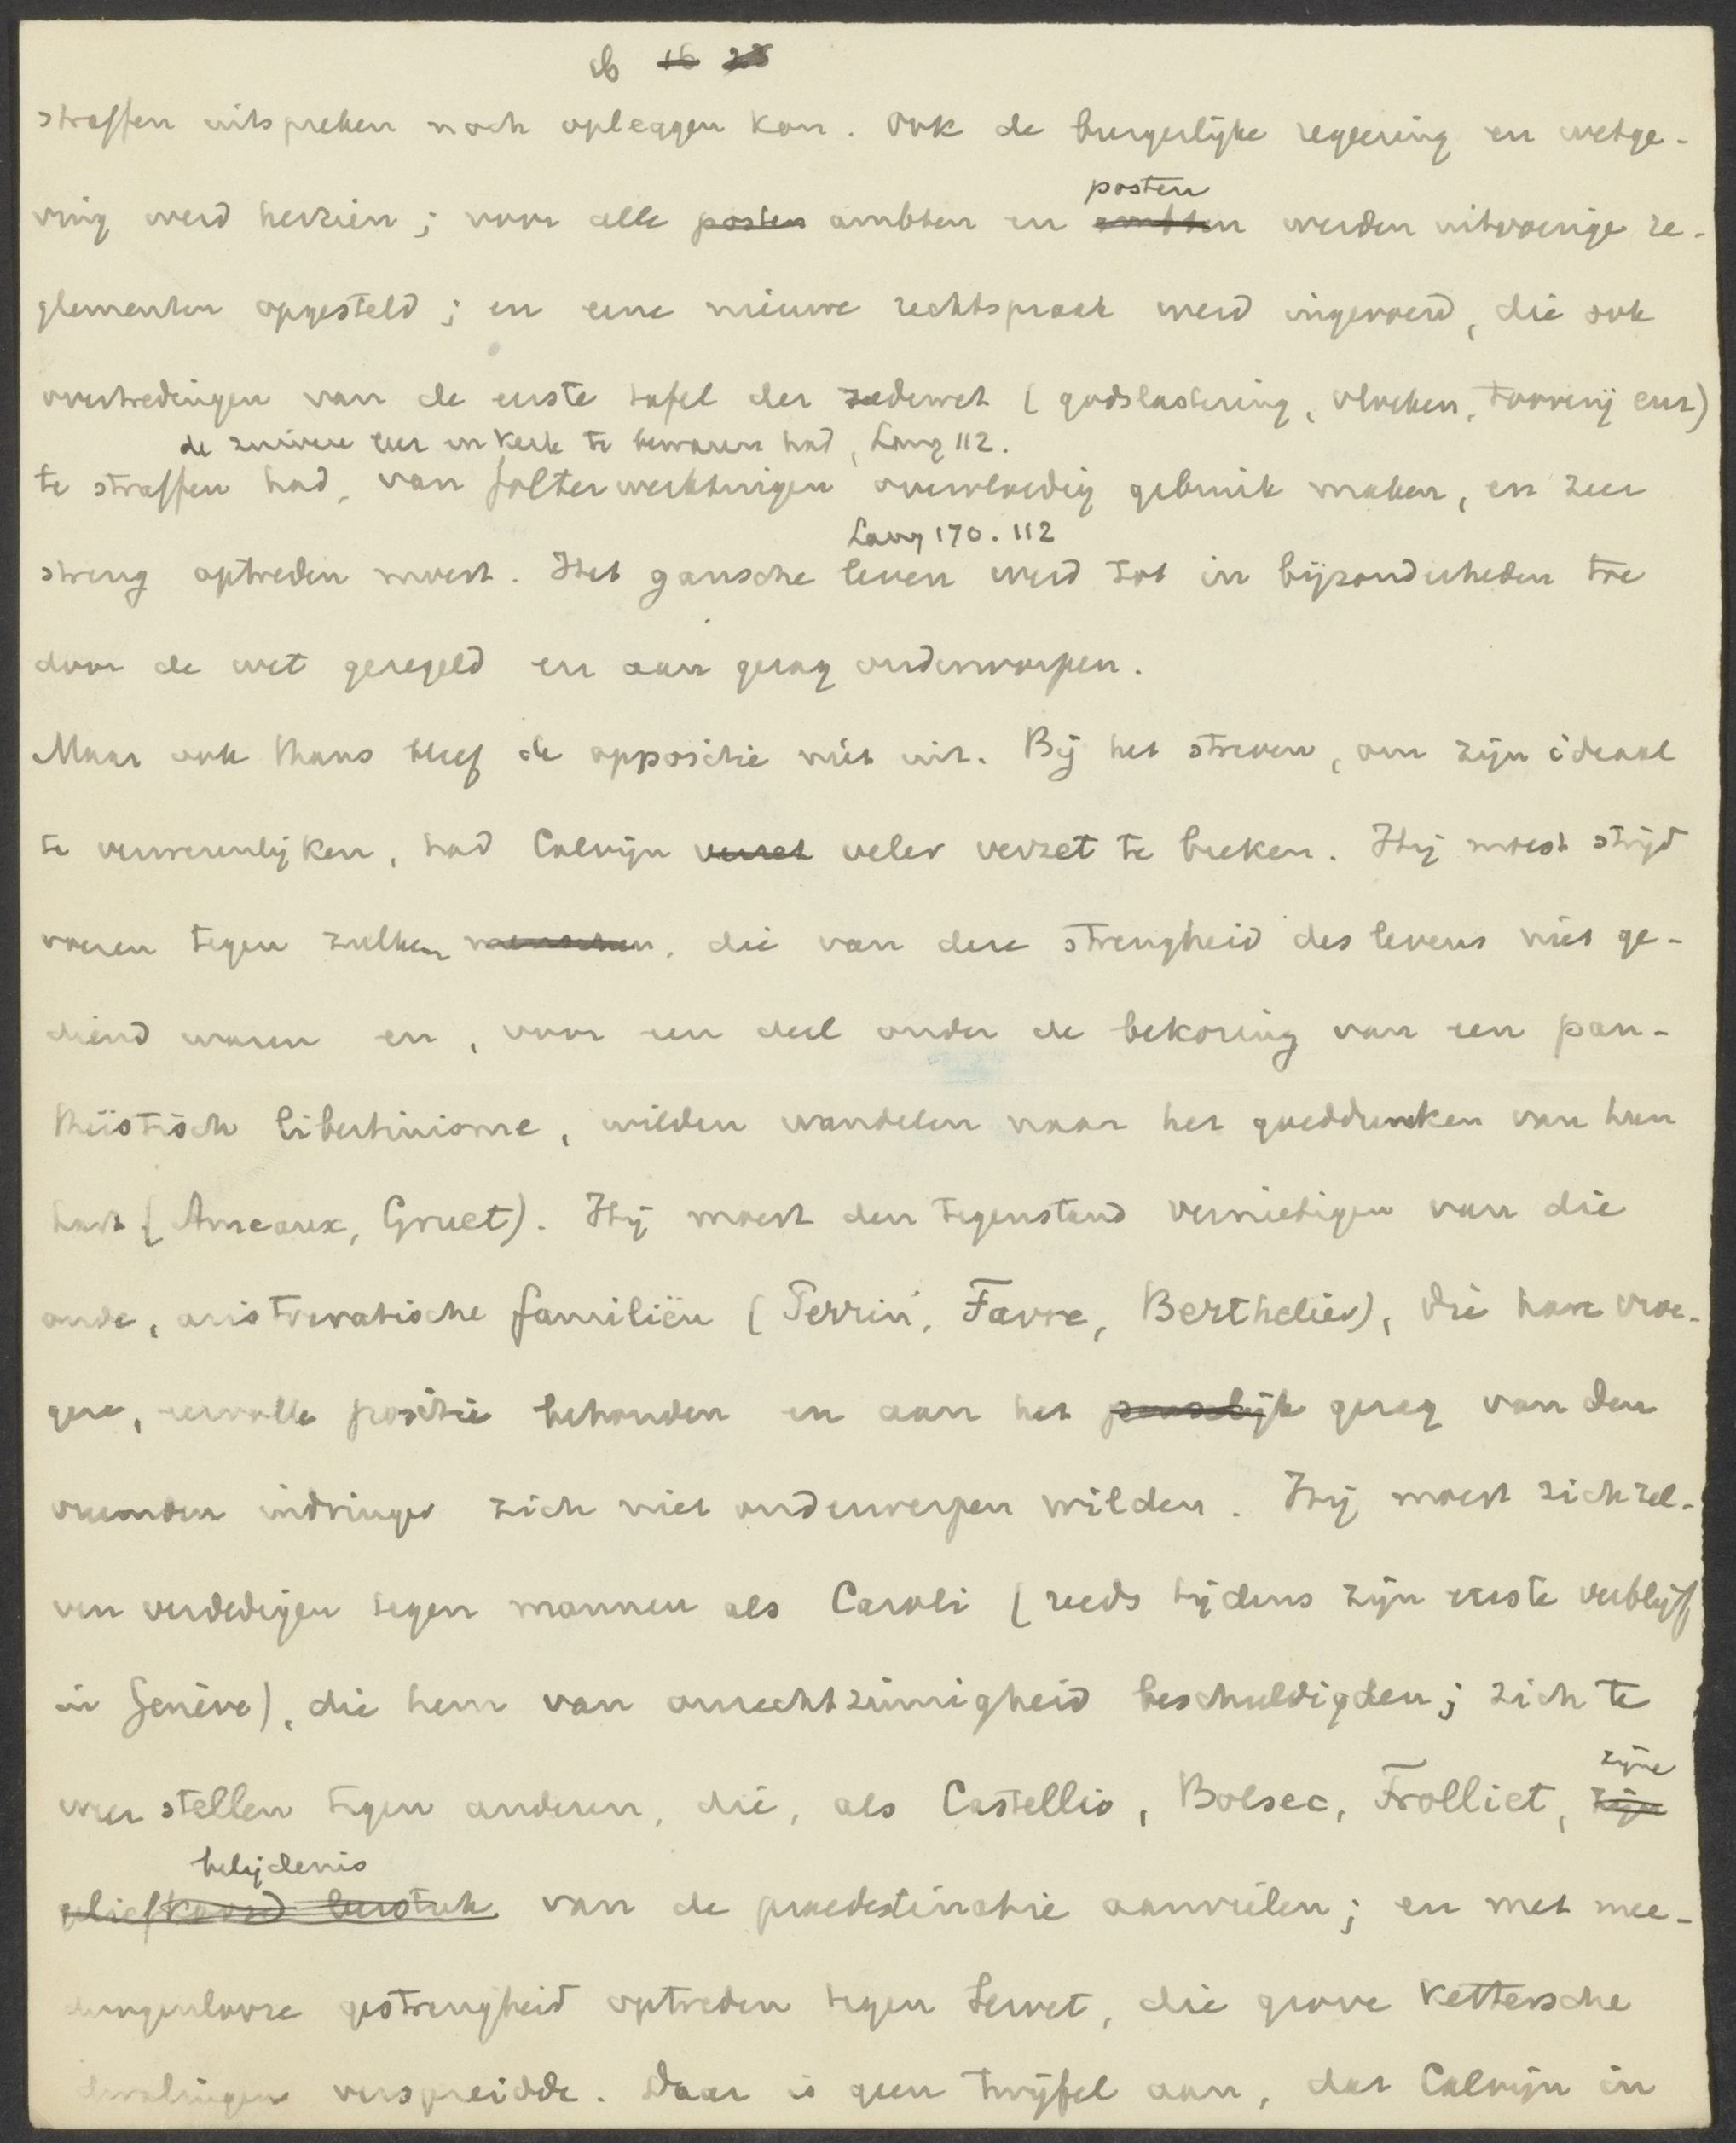 16 16 23
straffen uitspreken noch opleggen kon. Ook de burgerlijke regeering en wetge-
posten
ving werd herzien; voor alle posten ambten en ambten werden uitvoerige re-
glementen opgesteld; en eene nieuwe rechtspraak werd ingevoerd, die ook
overtredingen van de eerste tafel der zedewet (godslastering, vloeken, toovenij enz)
de zuivere leer en kerk te bewaren had, Lang 112.
te straffen had, van folterwerktuigen overvloedig gebruik maken, en zeer
Lang 170. 112
streng optreden moest. Het gansche leven werd tot in bijzonderheden toe
door de wet geregeld en aan gezag onderworpen.
Maar ook thans bleef de oppositie niet uit. Bij het streven, om zijn ideaal
te verwezenlijken, had Calvijn verzet veler verzet te breken. Hij moest strijd
voeren tegen zulken menschen, die van deze strengheid des levens niet ge-
diend waren en, voor een deel onder de bekoring van een pan-
theïstisch libertinisme, wilden wandelen naar het goeddunken van hun
hart (Ameaux, Gruet). Hij moest den tegenstand vernietigen van die
oude, aristocratische familiën (Perrin, Favre, Berthelier), die hare vroe-
gere, eervolle positie behouden en aan het pauselijk gezag van den
vreemden indringer zich niet onderwerpen wilden. Hij moest zichzel-
ven verdedigen tegen mannen als Caroli (reeds tijdens zijn eerste verblijf
in Genève), die hem van onrechtzinnigheid beschuldigden; zich te
zijne
weer stellen tegen anderen, die, als Castellio, Bolsec, Trolliet, zijn
belijdenis
geliefkoosd leerstuk van de praedestinatie aanvielen; en met mee-
dogenlooze gestrengheid optreden tegen Servet, die grove kettersche
dwalingen verspreidde. Daar is geen twijfel aan, dat Calvijn in